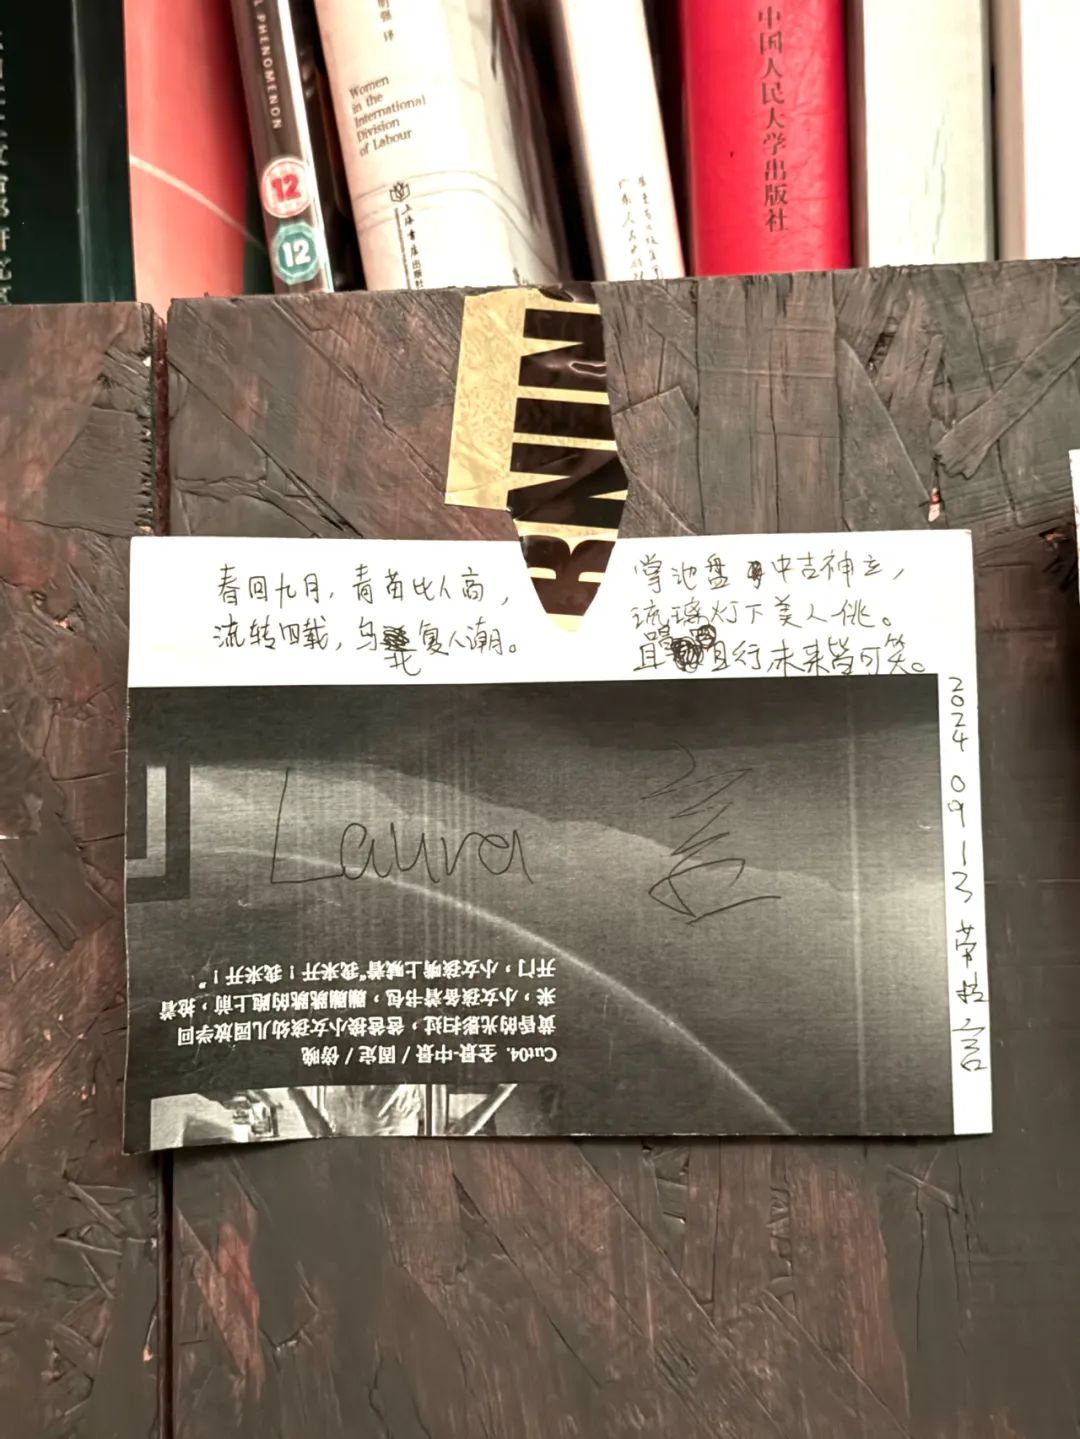 PHENOMENON
12
12
Women
in the
International
Division
of Labour
上海书店出版社
中国人民大学出版社
春回九月，青苗比人高，
流转四载，乌复人潮。
掌池盘中吉神立，
琉璃灯下美人佻。
且行未来皆可笑。
2024 09 13
Laura
Cut04. 全景-中景 / 固定 / 傍晚
黄昏的光影扫过，爸爸接小女孩幼儿园放学回
来，小女孩背着书包，蹦蹦跳跳的跑上前，抢着
开门，小女孩嘴上喊着“我来开！我来开！”